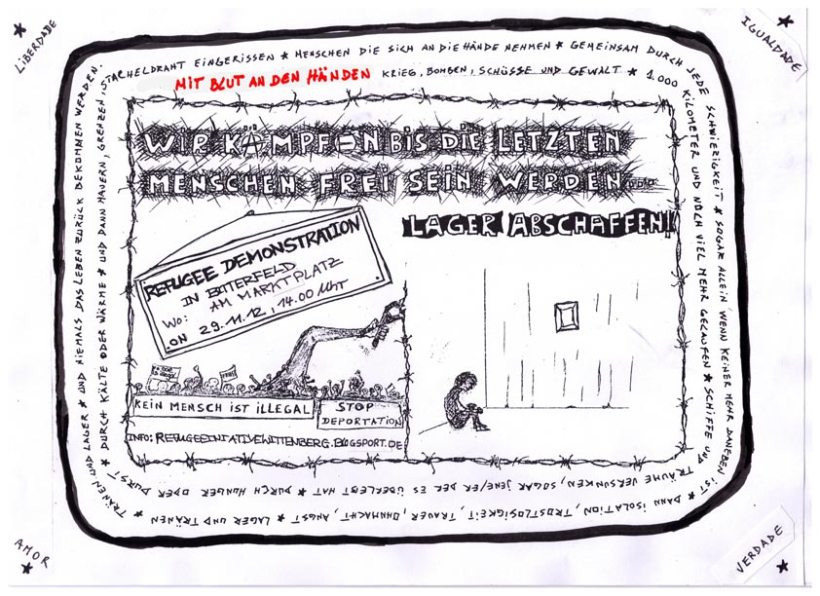 LIBERDADE
IGUALDADE
MIT BLUT AN DEN HÄNDEN KRIEG, BOMBEN, SCHÜSSE UND GEWALT * 1.000
KILOMETER UND NOCH VIEL MEHR GELAUFEN * SCHIFFE UND
TRÄUME VERSUNKEN, SOGAR JENE/ER DER ES ÜBERLEBT HAT * DURCH HUNGER ODER DURST *
DURCH KÄLTE ODER WÄRME * UND DANN MAUERN, GRENZEN,
STACHELDRAHT EINGERISSEN * MENSCHEN DIE SICH AN DIE HÄNDE NEHMEN * GEMEINSAM DURCH
JEDE SCHWIERIGKEIT * SOGAR ALLEIN WENN KEINER MEHR DANEBEN IST *
DANN ISOLATION, TROSTLOSIGKEIT, TRAUER, OHNMACHT, ANGST * LAGER UND TRÄNEN
TRÄNEN UND LAGER * UND NIEMALS DAS LEBEN ZURÜCK BEKOMMEN WERDEN.
WIR KÄMPFEN BIS DIE LETZTEN
MENSCHEN FREI SEIN WERDEN...
LAGER ABSCHAFFEN!
REFUGEE DEMONSTRATION
IN BITTERFELD
WO: AM MARKTPLATZ
ON 29.11.12, 14.00 UHR
KEIN MENSCH IST ILLEGAL
STOP
DEPORTATION
INFO: REFUGEEINITIATIVEWITTENBERG.BLOGSPORT.DE
AMOR
VERDADE